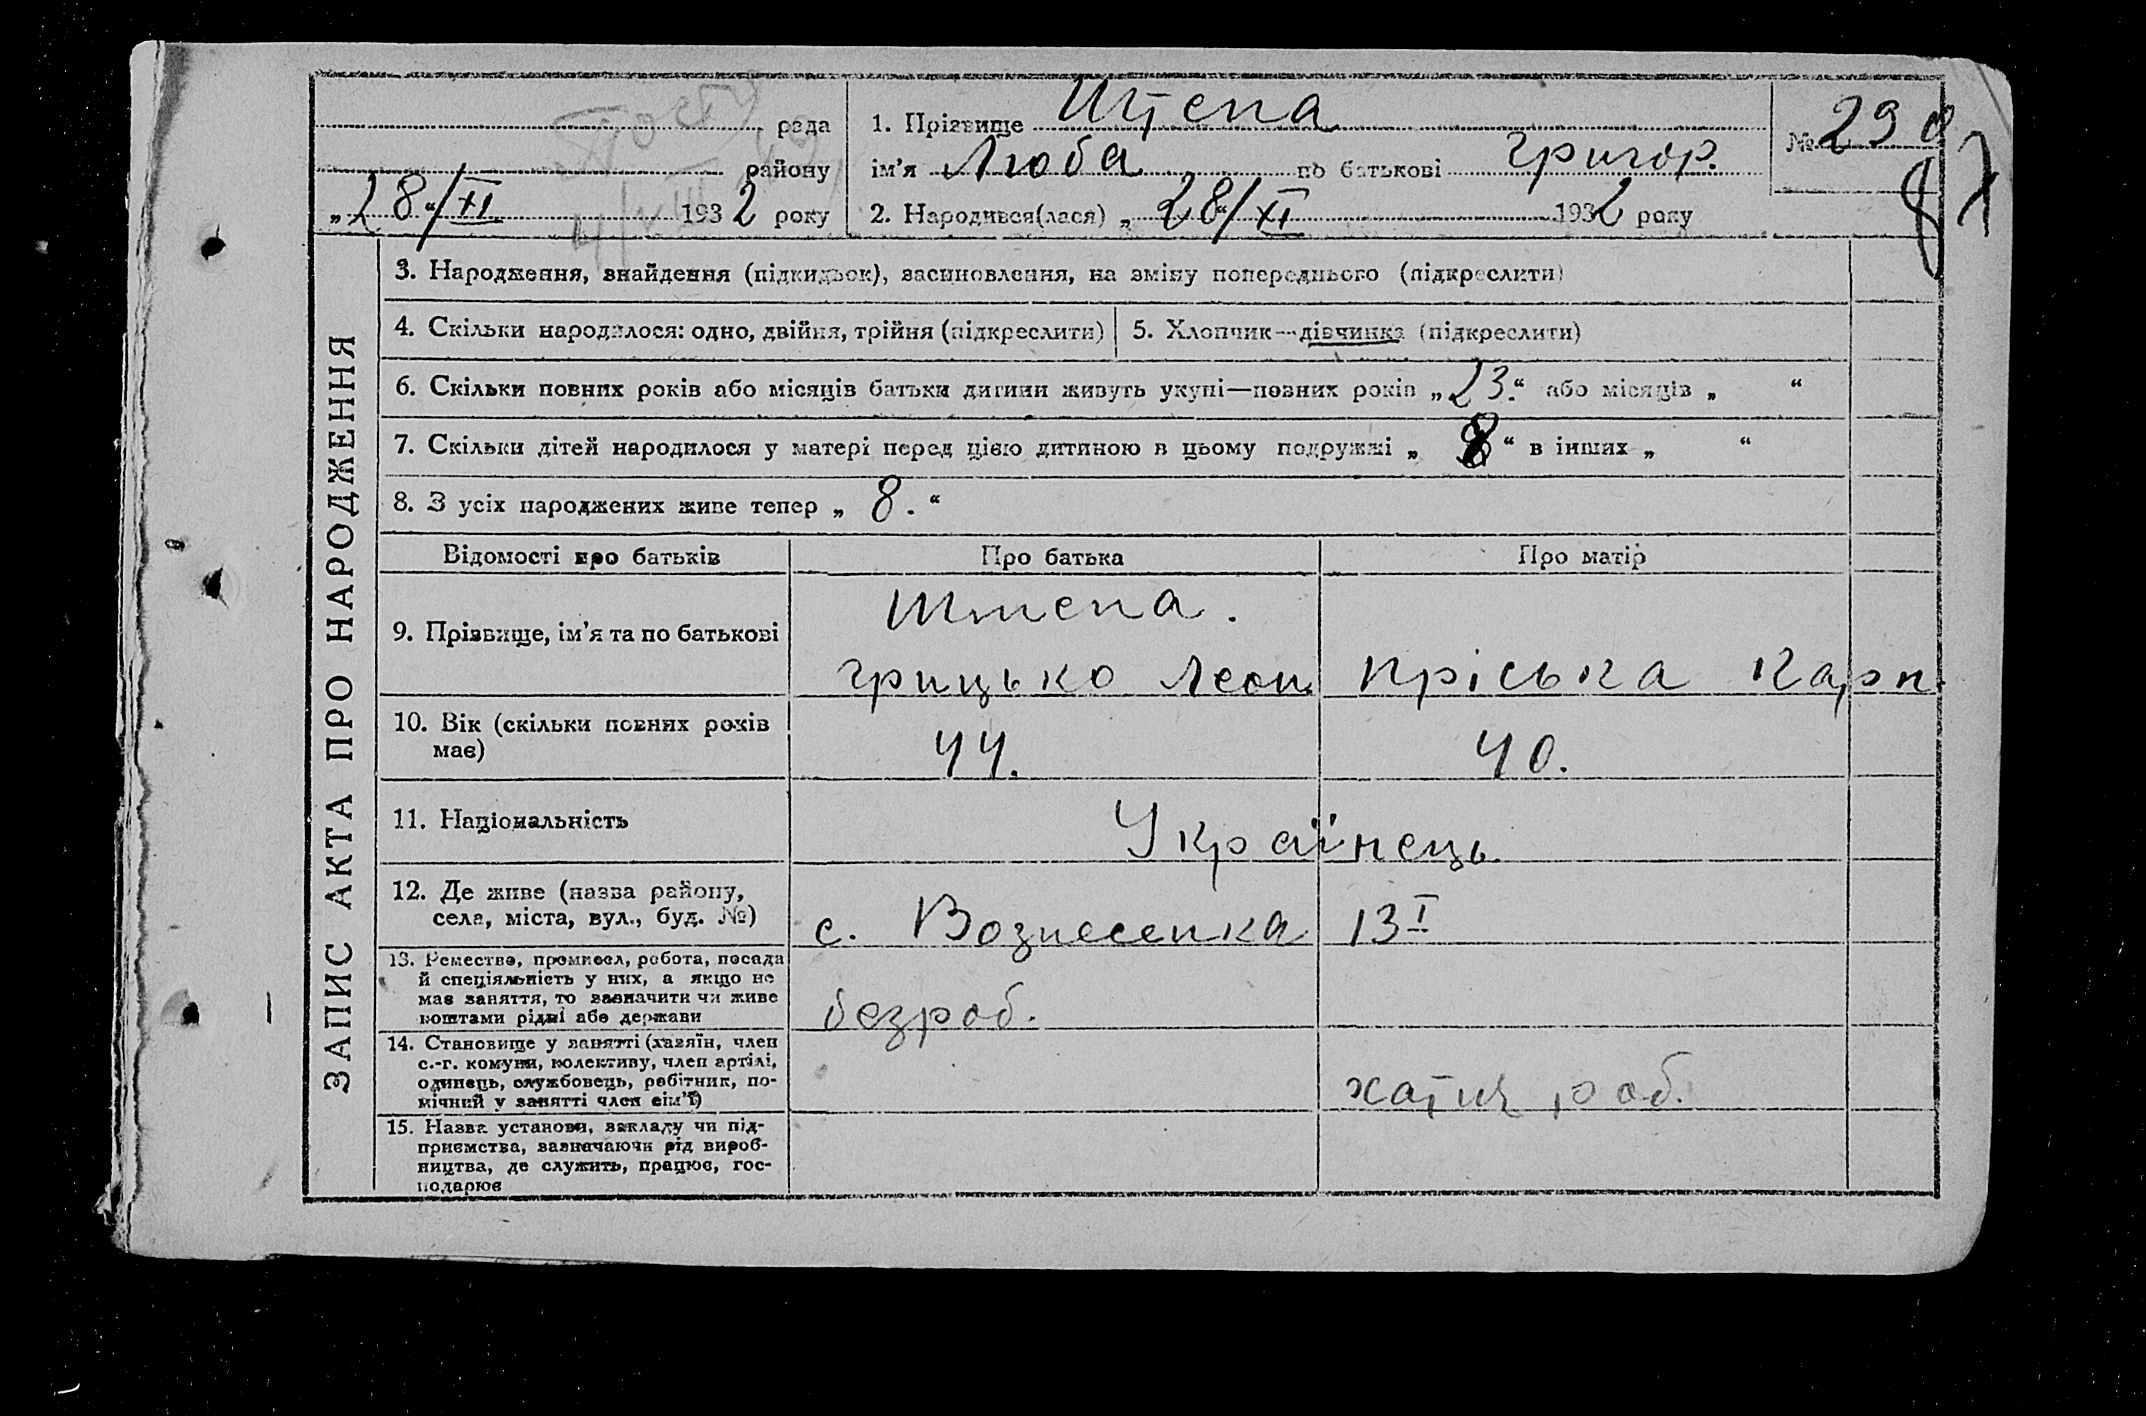 рада
району
„28“/XI 1932 року
1. Прізвище Штепа
ім’я Люба по батькові Григор.
2. Народився(лася) „28“/XI 1932 року
№ 29
87
ЗАПИС АКТА ПРО НАРОДЖЕННЯ
3. Народження, знайдення (підкидьок), засиновлення, на зміну попереднього (підкреслити)
4. Скільки народилося: одно, двійня, трійня (підкреслити)
5. Хлопчик—дівчинка (підкреслити)
6. Скільки повних років або місяців батьки дитини живуть укупі—повних років „23.“ або місяців „ “
7. Скільки дітей народилося у матері перед цією дитиною в цьому подружжі „8“ в інших „ “
8. З усіх народжених живе тепер „8.“
Відомості про батьків
Про батька
Про матір
9. Прізвище, ім’я та по батькові
Штепа.
Грицько Леон.
Пріська Карп.
10. Вік (скільки повних років
має)
44.
40.
11. Національність
Українець
12. Де живе (назва району,
села, міста, вул., буд. №)
с. Вознесенка 13 I
13. Ремество, промисел, робота, посада
й спеціяльність у них, а якщо не
має заняття, то зазначити чи живе
коштами рідні або держави
безроб.
14. Становище у занятті (хазяїн, член
с.-г. комуни, колективу, член артілі,
одинець, службовець, робітник, по-
мічний у занятті член сім’ї)
хатня роб.
15. Назва установи, закладу чи під-
приємства, зазначаючи рід вироб-
ництва, де служить, працює, гос-
подарює